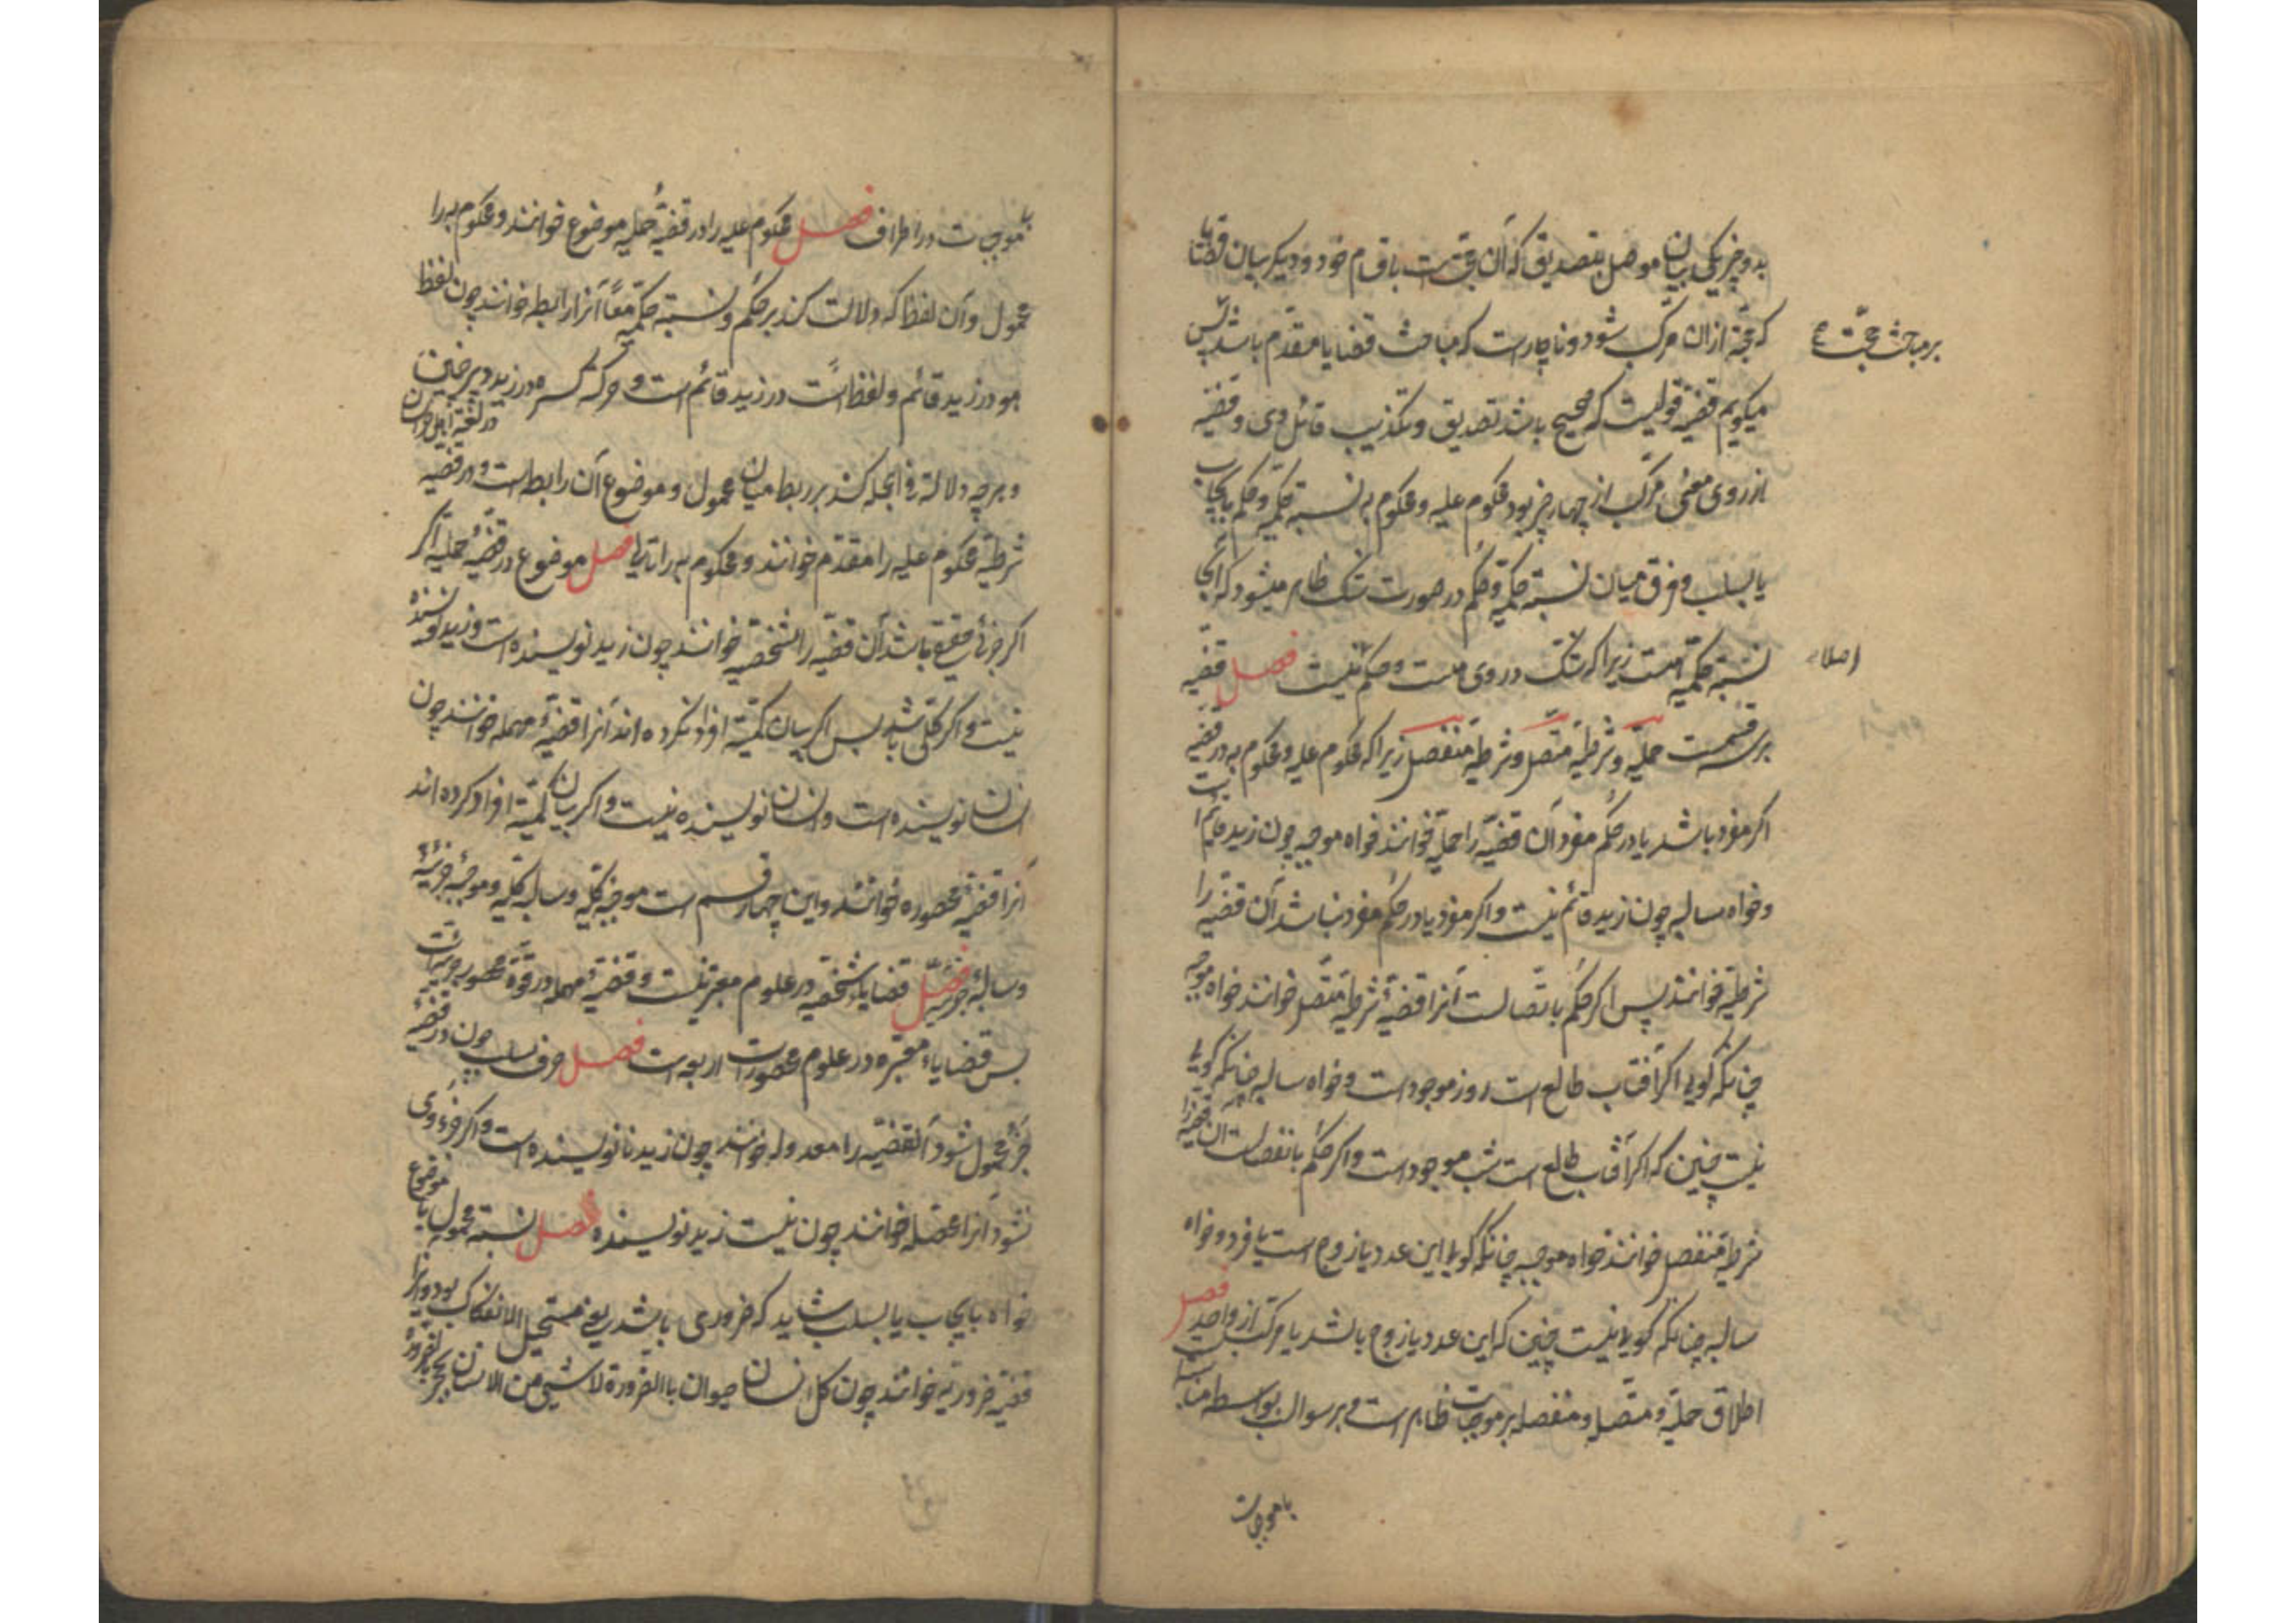 بدو چیز یکی بیان موصل بتصدیق که آن حجت است باقسام خود و دیگر بیان قضایا
که حجة ازان مرکب شود و ناچارست که مباحث قضایا مقدم باشد پس
بر مباحث حجت
میگویم قضیه قولیست که صحیح باشد تصدیق و تکذیب قائل وی و قضیه
از روی معنی مرکب از چهار چیز بود محکوم علیه و محکوم به و نسبة حکمیه و حکم بایجاب
یا بسلب و فرق میان نسبة حکمیه و حکم در صورت شک ظاهر میشود که آنجا
نسبة حکمیه است زیرا که شک در وی است و حکم نیست فصل قضیه
اصلا
بر سه قسمست حملیه و شرطیه متصل و شرطیه منفصل زیرا که محکوم علیه و محکوم به در قضیه
اگر مفرد باشد یا در حکم مفرد آن قضیه را حملیه خوانند خواه موجبه چون زید قائم است
و خواه سالبه چون زید قائم نیست و اگر مفرد یا در حکم مفرد نباشد آن قضیه را
شرطیه خوانند پس اگر حکم باتصالست آنرا قضیهٔ شرطیه متصل خوانند خواه موجبه
چنانکه گویی اگر آفتاب طالع است روز موجود است و خواه سالبه چنانکه گویی
نیست چنین که اگر آفتاب طالع است شب موجود است و اگر حکم بانفصالست آن قضیه را
شرطیه منفصل خوانند خواه موجبه چنانکه گویی این عدد یا زوج است یا فرد و خواه
سالبه چنانکه گویی نیست چنین که این عدد یا زوج باشد یا مرکب از واحد فصل
اطلاق حملیه و متصل و منفصله بر موجبات ظاهر است و بر سوالب بواسطه مشابهت
با موجبات
با موجبات در اطراف فصل محکوم علیه را در قضیهٔ حملیه موضوع خوانند و محکوم به را
محمول و آن لفظ که دلالت کند بر حکم و نسبة حکمیه معاً آنرا رابطه خوانند چون لفظ
هو در زید هو قائم و لفظ است در زید قائم است و حرکه کسره در زید دبیر
در لغة اهل خراسان
و هرچه دلالة فی الجمله کند بر ربط میان محمول و موضوع آن رابط است و در قضیه
شرطیه محکوم علیه را مقدم خوانند و محکوم به را تالی فصل موضوع در قضیهٔ حملیه اگر
اگر جزئی حقیقی باشد آن قضیه را شخصیه خوانند چون زید نویسنده است و زید نویسنده
نیست و اگر کلی باشد پس اگر بیان کمیة افراد نکرده اند آنرا قضیهٔ مهمله خوانند چون
انسان نویسنده است و انسان نویسنده نیست و اگر بیان کمیة افراد کرده اند
آنرا قضیهٔ محصوره خوانند و این چهار قسم است موجبه کلیه و سالبه کلیه و موجبهٔ جزئیه
و سالبه جزئیه فصل قضایاء شخصیه در علوم معتبر نیست و قضیهٔ مهمله در قوة محصوره جزئیه است
پس قضایاء معتبره در علوم محصورات اربعه است فصل حرف سلب چون در قضیه
جزء محمول شود آن قضیه را معدوله خوانند چون زید نا نویسنده است و اگر جزء وی
نشود آنرا محصله خوانند چون نیست زید نویسنده فصل نسبة محمول با موضوع
خواه بایجاب یا بسلب شاید که ضروری باشد یعنی مستحیل الانفکاک بود و آنرا
قضیه ضروریه خوانند چون کل انسان حیوان بالضرورة لا شیی من الانسان بحجر بالضرورة